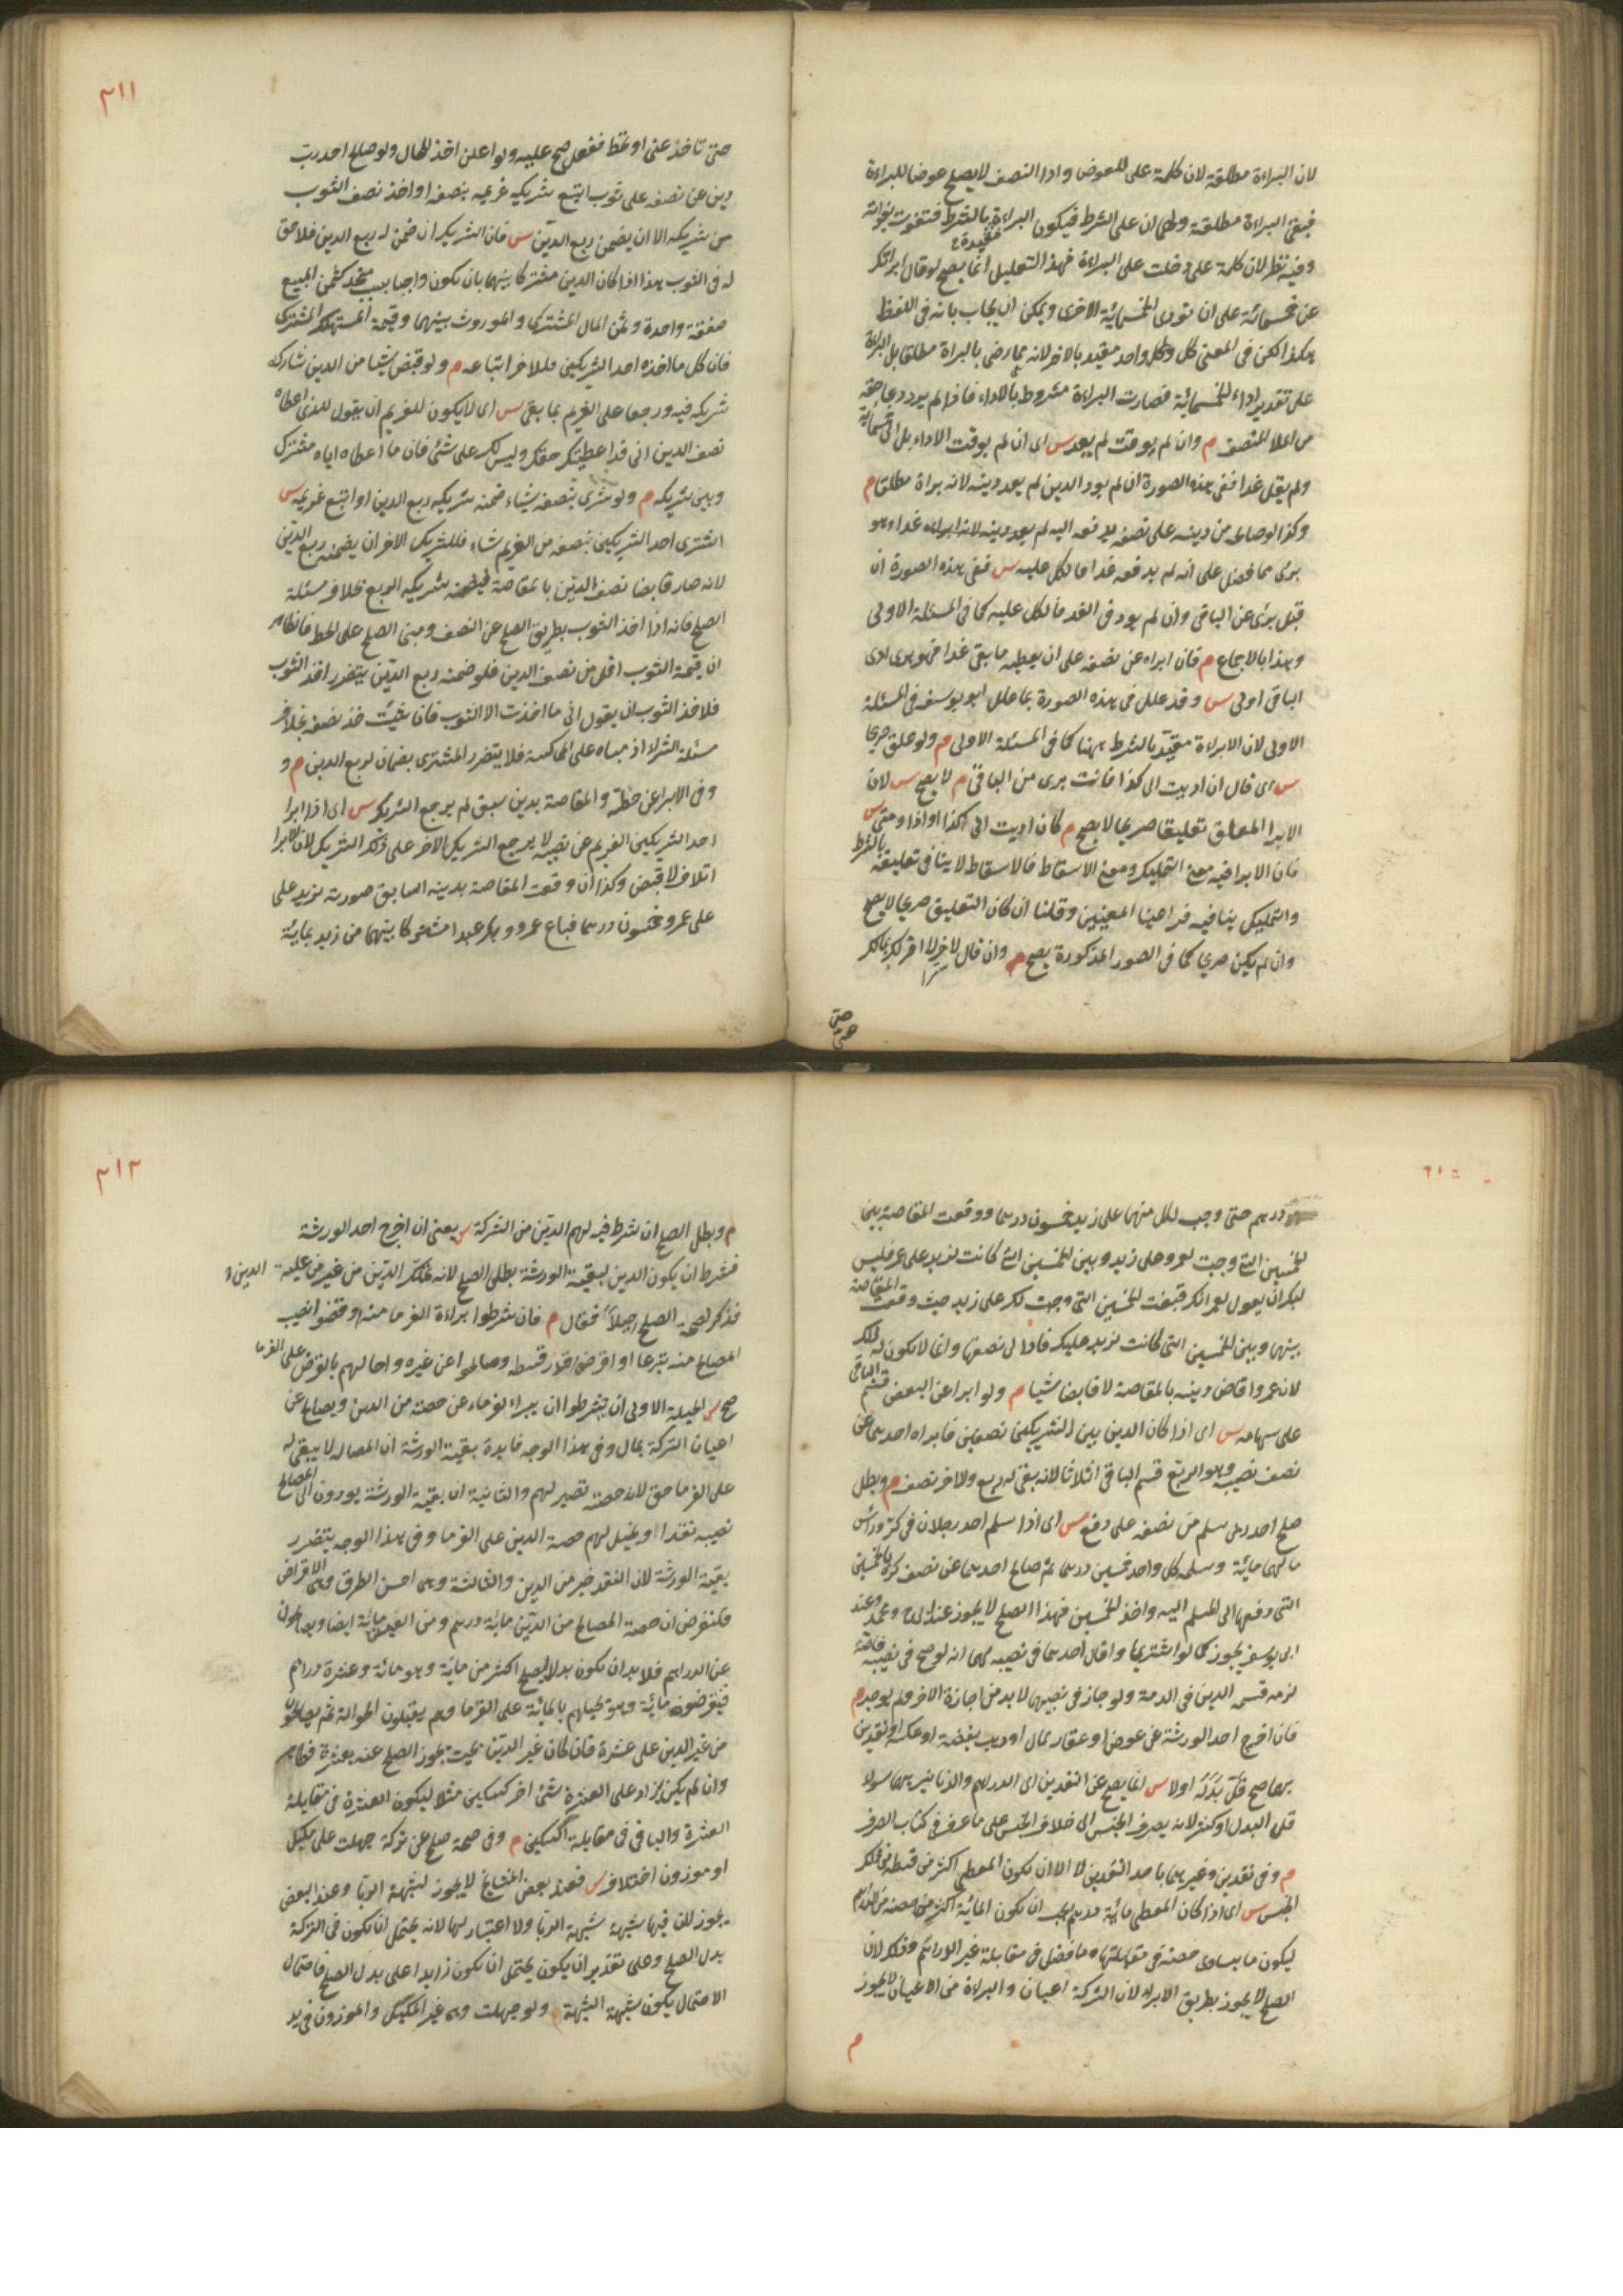 لان البراءة مطلقة لان كلمة على للعوض واداء النصف لا يصلح عوضا للبراءة
فبقى البراءة مطلقة ولهما ان على الشرط فيكون البراءة مقيدة بالشرط فتفوت بفواته
وفيه نظر لان كلمة على دخلت على البراءة فهذا التعليل انما يصح لو قال ابرأتك
عن خمسمائة على ان تؤدى الخمسمائة الاخرى ويمكن ان يجاب بانه فى اللفظ
هكذا لكن فى المعنى كل واحد مقيد بالاخر لانه ما رضى بالبراة مطلقا بل البراءة
على تقدير اداء الخمسمائة فصارت البراءة مشروط بالاداء فاذا لم يرد دعا حقه
م وان لم يوقت لم يعد س اى ان لم يوقت الاداء بل
ولم يقل غدا ففى هذه الصورة ان لم يود الدين لم يعد دينه لانه براة مطلقا م
وكذا لو صالحه من دينه على نصفه يدفعه اليه لم يعد دينه لانه ابراءه غدا وهو
برئ مما فضل على انه لم يدفعه غدا فالكل عليه س ففى هذه الصورة ان
قبل برئ عن الباقى وان لم يود فى الغد فالكل عليه كما فى المسئلة الاولى
وهذا بالاجماع م فان ابراه عن نصفه على ان يعطيه ما بقى غدا فهو برى ادى
الباقى اولى س وقد علل فى هذه الصورة بما علل ابو يوسف فى المسئلة
الاولى لان الابراءة مقيد بالشرط ههنا كما فى المسئلة الاولى م ولو علق صريحا
س اى قال ان اديت الى كذا فانت برى من الباقى م لا يصح س لان
الابرا المعلق تعليقا صريحا لا يصح م كان اديت الى كذا او اذا ومتى س
فان الابرا فيه معنى التمليك ومعنى الاسقاط فالاسقاط لا ينافى تعليقه بالشرط
والتمليك ينافيه فراعينا المعنيين وقلنا ان كان التعليق صريحا لا يصح
وان لم يكن صريحا كما فى الصور المذكورة يصح م وان قال لاخر لا اقر لك بمالك
سرا
حتى
٢١١
حتى تاخذ عنى او تحط ففعل صح عليه ولو اعلن اخذ للحال ولو صالح احد ربى
دين عن نصفه على ثوب اتبع شريكه غريمه بنصفه او اخذ نصف الثوب
من شريكه الا ان يضمن ربع الدين س فان الشريك ان ضمن له ربع الدين فلا حق
له فى الثوب هذا اذا كان الدين مشتركا بينهما بان يكون واجبا بسبب متحد كثمن المبيع
صفقة واحدة وثمن المال المشترك والموروث بينهما وقيمة المستهلك المشترك
فان كل ما اخذه احد الشريكين فللاخر اتباعه م ولو قبض شيئا من الدين شاركه
شريكه فيه ورجعا على الغريم بما بقى س اى لا يكون للغريم ان يقول للذى اعطاه
نصف الدين انى قد اعطيتك حقك وليس لك على شئ فان ما اعطاه اياه مشترك
وبين شريكه م ولو شرى بنصفه شيئا ضمنه شريكه ربع الدين او اتبع غريمه س
اشترى احد الشريكين بنصفه من الغريم شيئا فللشريك الاخر ان يضمنه ربع الدين
لانه صار قابضا نصف الدين بالمقاصة فيضمنه شريكه الربع بخلاف مسئلة
الصلح فانه اذا اخذ الثوب بطريق الصلح عن النصف ومبنى الصلح على الحط فالظاهر
ان قيمة الثوب اقل من نصف الدين فلو ضمنه ربع الدين يتضرر اخذ الثوب
فلاخذ الثوب ان يقول انى ما اخذت الا الثوب فان شئت خذ نصفه بخلاف
مسئلة الشراء اذ مبناه على المماكسة فلا يتضرر المشترى بضمان لربع الدين م و
وفى الابرا عن حظه والمقاصة بدين سبق لم يرجع الشريك س اى اذا ابرا
احد الشريكين الغريم عن نصيبه لا يرجع الشريك الاخر على ذلك الشريك لان الابرا
اتلاف لا قبض وكذا ان وقعت المقاصة بدينه السابق صورته لزيد على
على عمرو خمسون درهما فباع عمرو وبكر عبدا مشتركا بينهما من زيد بمائة
درهم حتى وجب لكل منهما على زيد خمسون درهما ووقعت المقاصة بين
الخمسين التى وجبت لعمرو على زيد وبين الخمسين التى كانت لزيد على عمر فليس
لبكر ان يقول لعمر انك قبضت الخمسين التى وجبت لك على زيد حيث وقعت المقاصة
بينها وبين الخمسين التى كانت لزيد عليك فادا لى نصفها وانما لا يكون له ذلك
لان عمروا قاض دينه بالمقاصة لا قابضا شيئا م ولو ابرا عن البعض قسم الباقى
على سهامه س اى اذا كان الدين بين الشريكين نصفين فابراه احدهما عن
نصف نصيبه وهو الربع قسم الباقى اثلاثا لانه بقى له ربع ولاخر نصف م وبطل
صلح احد ربى سلم من نصفه على ما دفع س اى اذا سلم احد رجلان فى كر وراس
مالهما مائة وسلمه كل واحد خمسين درهما ثم صالح احدهما عن نصف كره بالخمسين
التى دفعها الى المسلم اليه واخذ الخمسين فهذا الصلح لا يجوز عند ابى ح ومحمد وعند
ابى يوسف يجوز كما لو اشتريا واقال احدهما فى نصيبه لهما انه لو صح فى نصيبه خاصة
لزم قسمة الدين فى الذمة ولو جاز فى نصيبهما لا بد من اجازة الاخر ولم يوجد م
فان اخرج احد الورثة عن عوض او عقار بمال او ذهب بفضة او عكسه او نقدين
بهما صح قل بدله اولا س انما يصح عن النقدين اى الدراهم والدنانير بهما سواء
قل البدل او كثر لانه يصرف الجنس الى خلاف الجنس على ما عرف فى كتاب الصرف
م وفى نقدين وغيرهما باحد النقدين لا الا ان يكون المعطى اكثر من قسطه من ذلك
الجنس س اى اذا كان المعطى مائة درهم يجب ان يكون المائة اكثر من حصته من الدراهم
ليكون ما يساوى حصته فى مقابلتها وما فضل فى مقابلة غير الدراهم وذلك لان
الصلح لا يجوز بطريق الابراء لان التركة اعيان والبراءة من الاعيان لا يجوز
م
٢١٢
م وبطل الصلح ان شرط فيه لهم الدين من التركة س يعنى ان اخرج احد الورثة
فشرط ان يكون الدين لبقية الورثة بطل الصلح لانه تمليك الدين من غير من عليه الدين و
فذكر لصحة الصلح حيلا فقال م فان شرطوا براءة الغرما منه او قضوا نصيب
المصالح منه تبرعا او اقرضوا قدر قسطه وصالحوا عن غيره واحالهم بالقرض على الغرما
صح س الحيلة الاولى ان يشرطوا ان يبراء لغرماء عن حصته من الدين ويصالح عن
اعيان التركة بمال وفى هذا الوجه فايدة بقية الورثة ان المصالح لا يبقى له
على الغرما حق لان حصته تصير لهم والثانية ان بقية الورثة يودون الى المصالح
نصيبه نقدا ويحيل لهم حصة الدين على الغرما وفى هذا الوجه يتضرر
بقية الورثة لان النقد خير من الدين والثالثة وهى احسن الطرق وهى الاقراض
فلنفرض ان حصة المصالح من الدين مائة درهم ومن العين مائة ايضا ويصالحون
عن الدراهم فلا بد ان يكون بدل الصلح اكثر من مائة وهو مائة وعشرة دراهم
فيقرضون مائة وهو يحيلهم بالمائة على الغرما وهم يقبلون الحوالة ثم يصالحون
من غير الدين على عشرة فان كان غير الدين بحيث يجوز الصلح عنه بعشرة فظاهر
وان لم يكن يزاد على العشرة شئ اخر كسكين مثلا ليكون العشرة فى مقابلة
العشرة والباقى فى مقابلة السكين م وفى صحة صلح عن تركة جهلت على مكيل
او موزون اختلاف س فعند بعض المشايخ لا يجوز لشبهة الربا وعند البعض
يجوز لان فيها شبهة شبهة الربا ولا اعتبار لها لانه يحتمل ان يكون فى التركة
بدل الصلح وعلى تقدير ان يكون يحتمل ان يكون زايدا على بدل الصلح فاحتمال
الاحتمال يكون شبهة الشبهة م ولو جهلت وهى غير المكيل والموزون فى يد